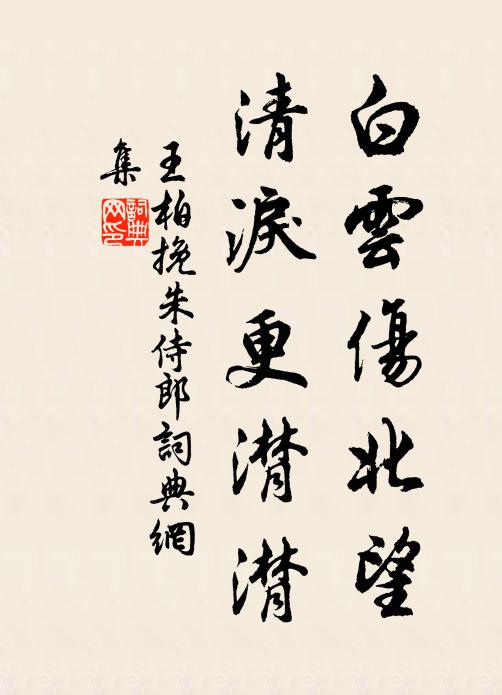 白雲傷北望
清淚更潸潸
王柏挽朱侍郎詞典網
集
詞典網印